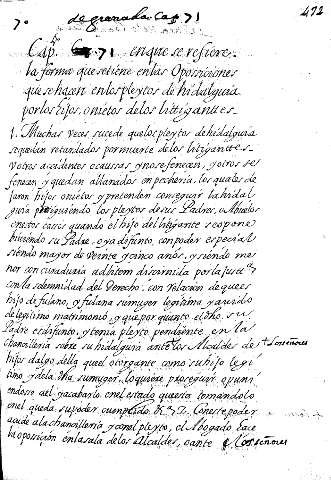 7º de granada Cap. 71 472
Cap. 71 en que se refiere
la forma que se tiene en las Oposiciones
que se hacen en los pleytos de hidalguia
por los hijos, o nietos de los littigantes
1. Muchas veces sucede que los pleytos de hidalguia
se quedan retardados por muerte de los litigantes
y otros accidentes o caussas y no se fenecen, y otros se
fenecen y quedan allanados en pecheria, los quales de
jaron hijos o nietos y pretenden conseguir la hidal
guia prosiguiendo los pleytos de sus Padres, o Abuelos
en estos casos quando el hijo del litigante se opone
biuiendo su Padre, o ya difunto, con poder especial
siendo mayor de veinte y cinco años, y siendo me
nor con curaduria adlitem discernida por la Justª
con la solemnidad del Derecho, con relacion de que es
hijo de fulano, y fulana su muger legitimo y auido
de legitimo matrimonio, y que por quanto el dho. su
Padre es difunto, y tenia pleyto pendiente en la
chancilleria sobre su hidalguia ante los Alcaldes de + Los señores
hijos dalgo della quel otorgante como su hijo legi
timo, y de la dha su muger, lo quiere proseguir oponi
endose a el y acabarlo en el estado questa tomandolo
en el queda su poder cumplido &ª. Con este poder
acude a la chancilleria y con el pleyto, el Abogado hace
la oposicion en la sala de los Alcaldes, o ante + Los señores